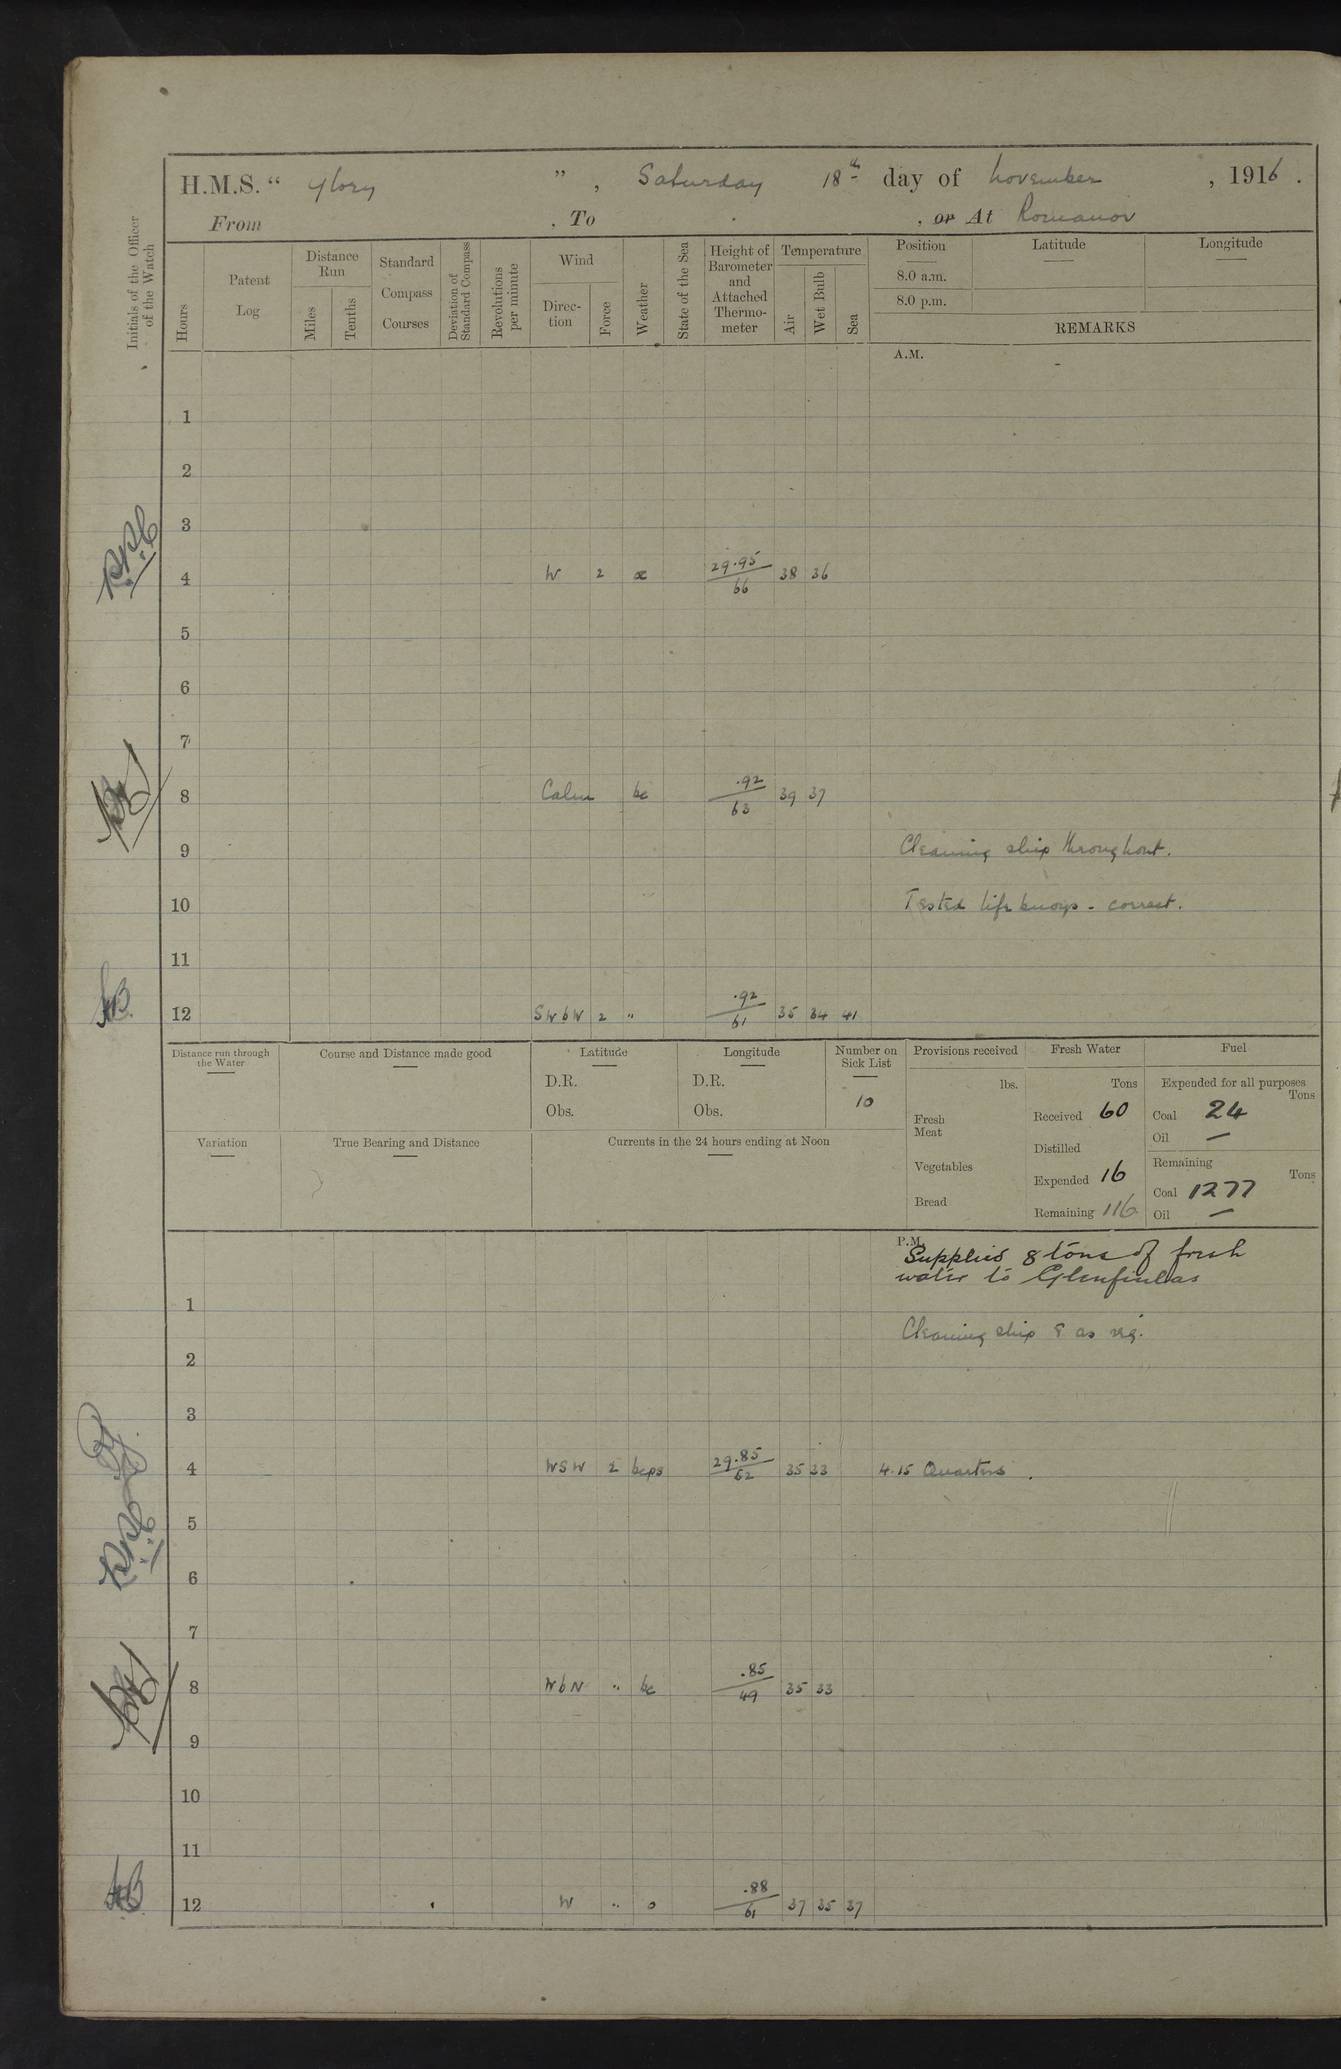 H.M.S. " Glory ", Saturday 18th day of November, 1916.
From . To , or At Romanov
Initials of the Officer of the Watch
Hours
Patent Log
Distance Run
Miles
Tenths
Standard Compass Courses
Deviation of Standard Compass
Revolutions per minute
Wind
Direction
Force
Weather
State of the Sea
Height of Barometer and Attached Thermometer
Temperature
Air
Wet Bulb
Sea
Position
Latitude
Longitude
8.0 a.m.
8.0 p.m.
REMARKS
A.M.
1
2
3
4 W 2 29.95/66 38 36
5
6
7
8 Calm bc .92/63 39 37
9 Cleaning ship throughout.
10 Tested life buoys - correct.
11
12 SWbW 2 " .92/61 35 34 41
Distance run through the Water
Course and Distance made good
Latitude
D.R.
Obs.
Longitude
D.R.
Obs.
Number on Sick List
10
Provisions received
lbs.
Fresh Meat
Vegetables
Bread
Fresh Water
Tons
Received 60
Distilled
Expended 16
Remaining 116
Fuel
Expended for all purposes
Tons
Coal 24
Oil —
Remaining
Tons
Coal 1277
Oil —
Variation
True Bearing and Distance
Currents in the 24 hours ending at Noon
P.M.
Supplied 8 tons of fresh
water to Glenfinlas
1
Cleaning ship & as req.
2
3
4 WSW 2 bcps 29.85/62 35 33 4.15 Quarters.
5
6
7
8 WbN " bc .85/49 35 33
9
10
11
12 W " o .88/61 37 35 37